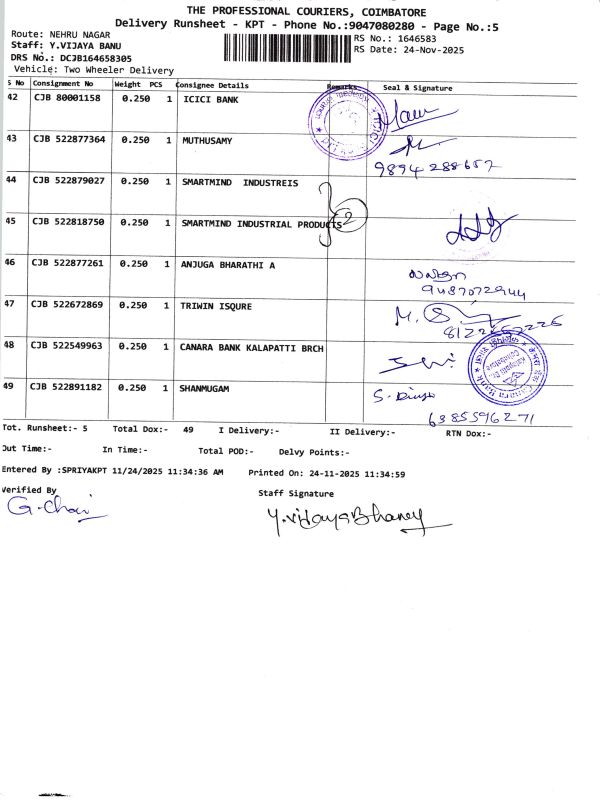 THE PROFESSIONAL COURIERS, COIMBATORE
Delivery Runsheet - KPT - Phone No.:9047080280 - Page No.:5
Route: NEHRU NAGAR
Staff: Y.VIJAYA BANU
DRS No.: DCJB164658305
Vehicle: Two Wheeler Delivery
RS No.: 1646583
RS Date: 24-Nov-2025
S No Consignment No Weight PCS Consignee Details Remarks Seal & Signature
42 CJB 80001158 0.250 1 ICICI BANK
43 CJB 522877364 0.250 1 MUTHUSAMY
9894288657
44 CJB 522879027 0.250 1 SMARTMIND INDUSTREIS
45 CJB 522818750 0.250 1 SMARTMIND INDUSTRIAL PRODUCTS
2
46 CJB 522877261 0.250 1 ANJUGA BHARATHI A
9487072944
47 CJB 522672869 0.250 1 TRIWIN ISQURE
48 CJB 522549963 0.250 1 CANARA BANK KALAPATTI BRCH
Canara Bank
49 CJB 522891182 0.250 1 SHANMUGAM
6385596271
Tot. Runsheet:- 5 Total Dox:- 49 I Delivery:- II Delivery:- RTN Dox:-
Out Time:- In Time:- Total POD:- Delvy Points:-
Entered By :SPRIYAKPT 11/24/2025 11:34:36 AM Printed On: 24-11-2025 11:34:59
Verified By Staff Signature
Y.VijayaBhaney